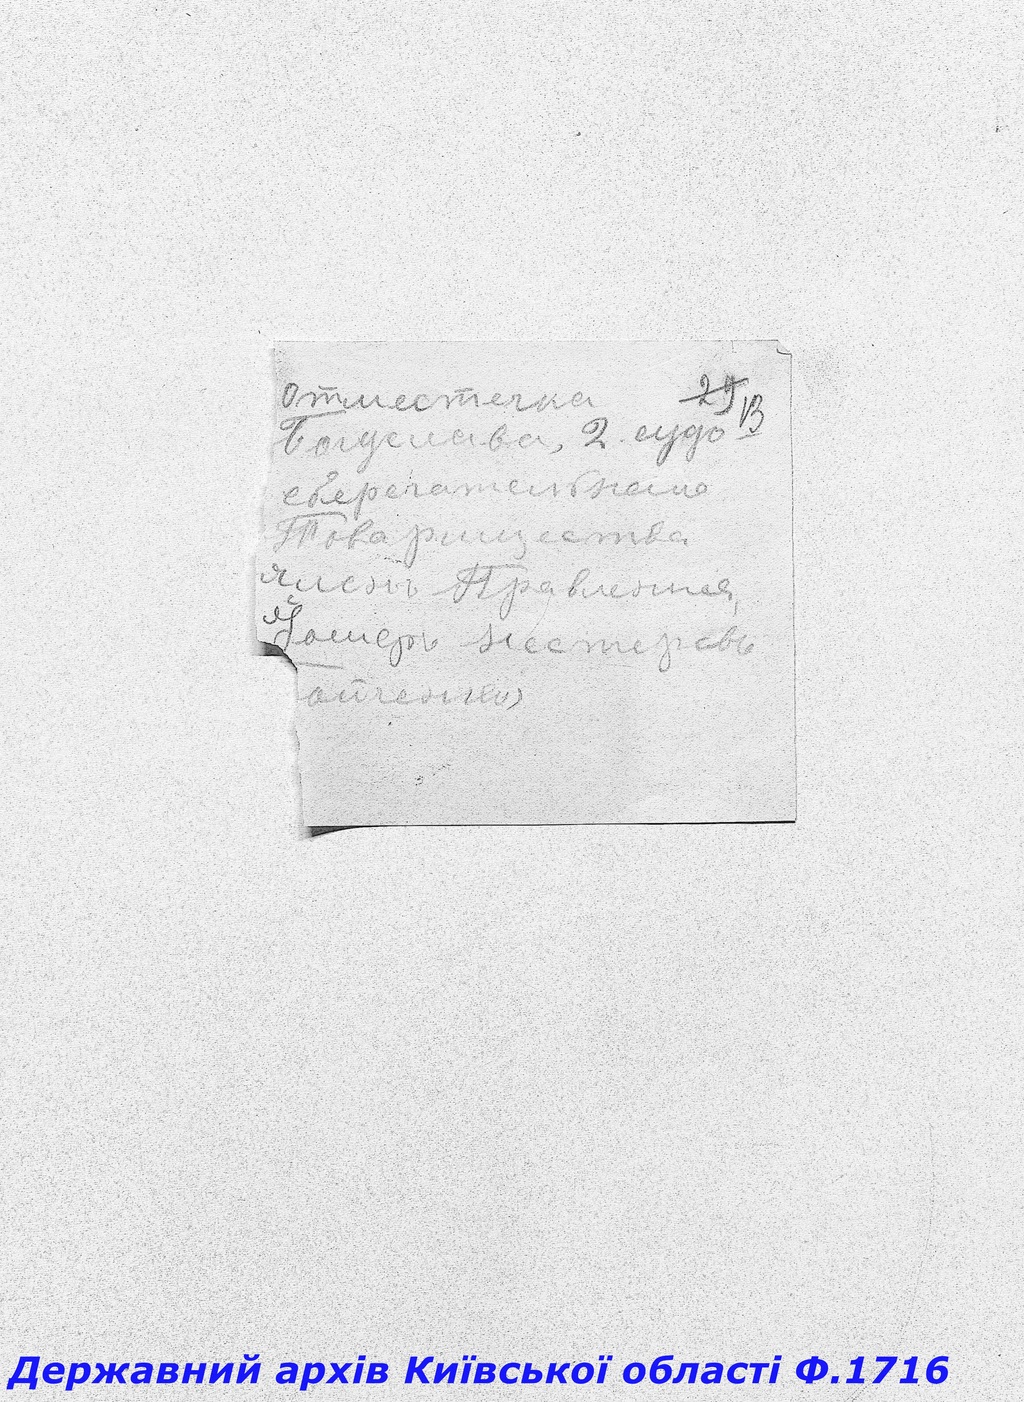 отместечка 29 13
Богуслава, 2. судо
сберегательнаго
Товарищества
членъ Правления,
Нестеровъ
Державний архів Київської області Ф.1716